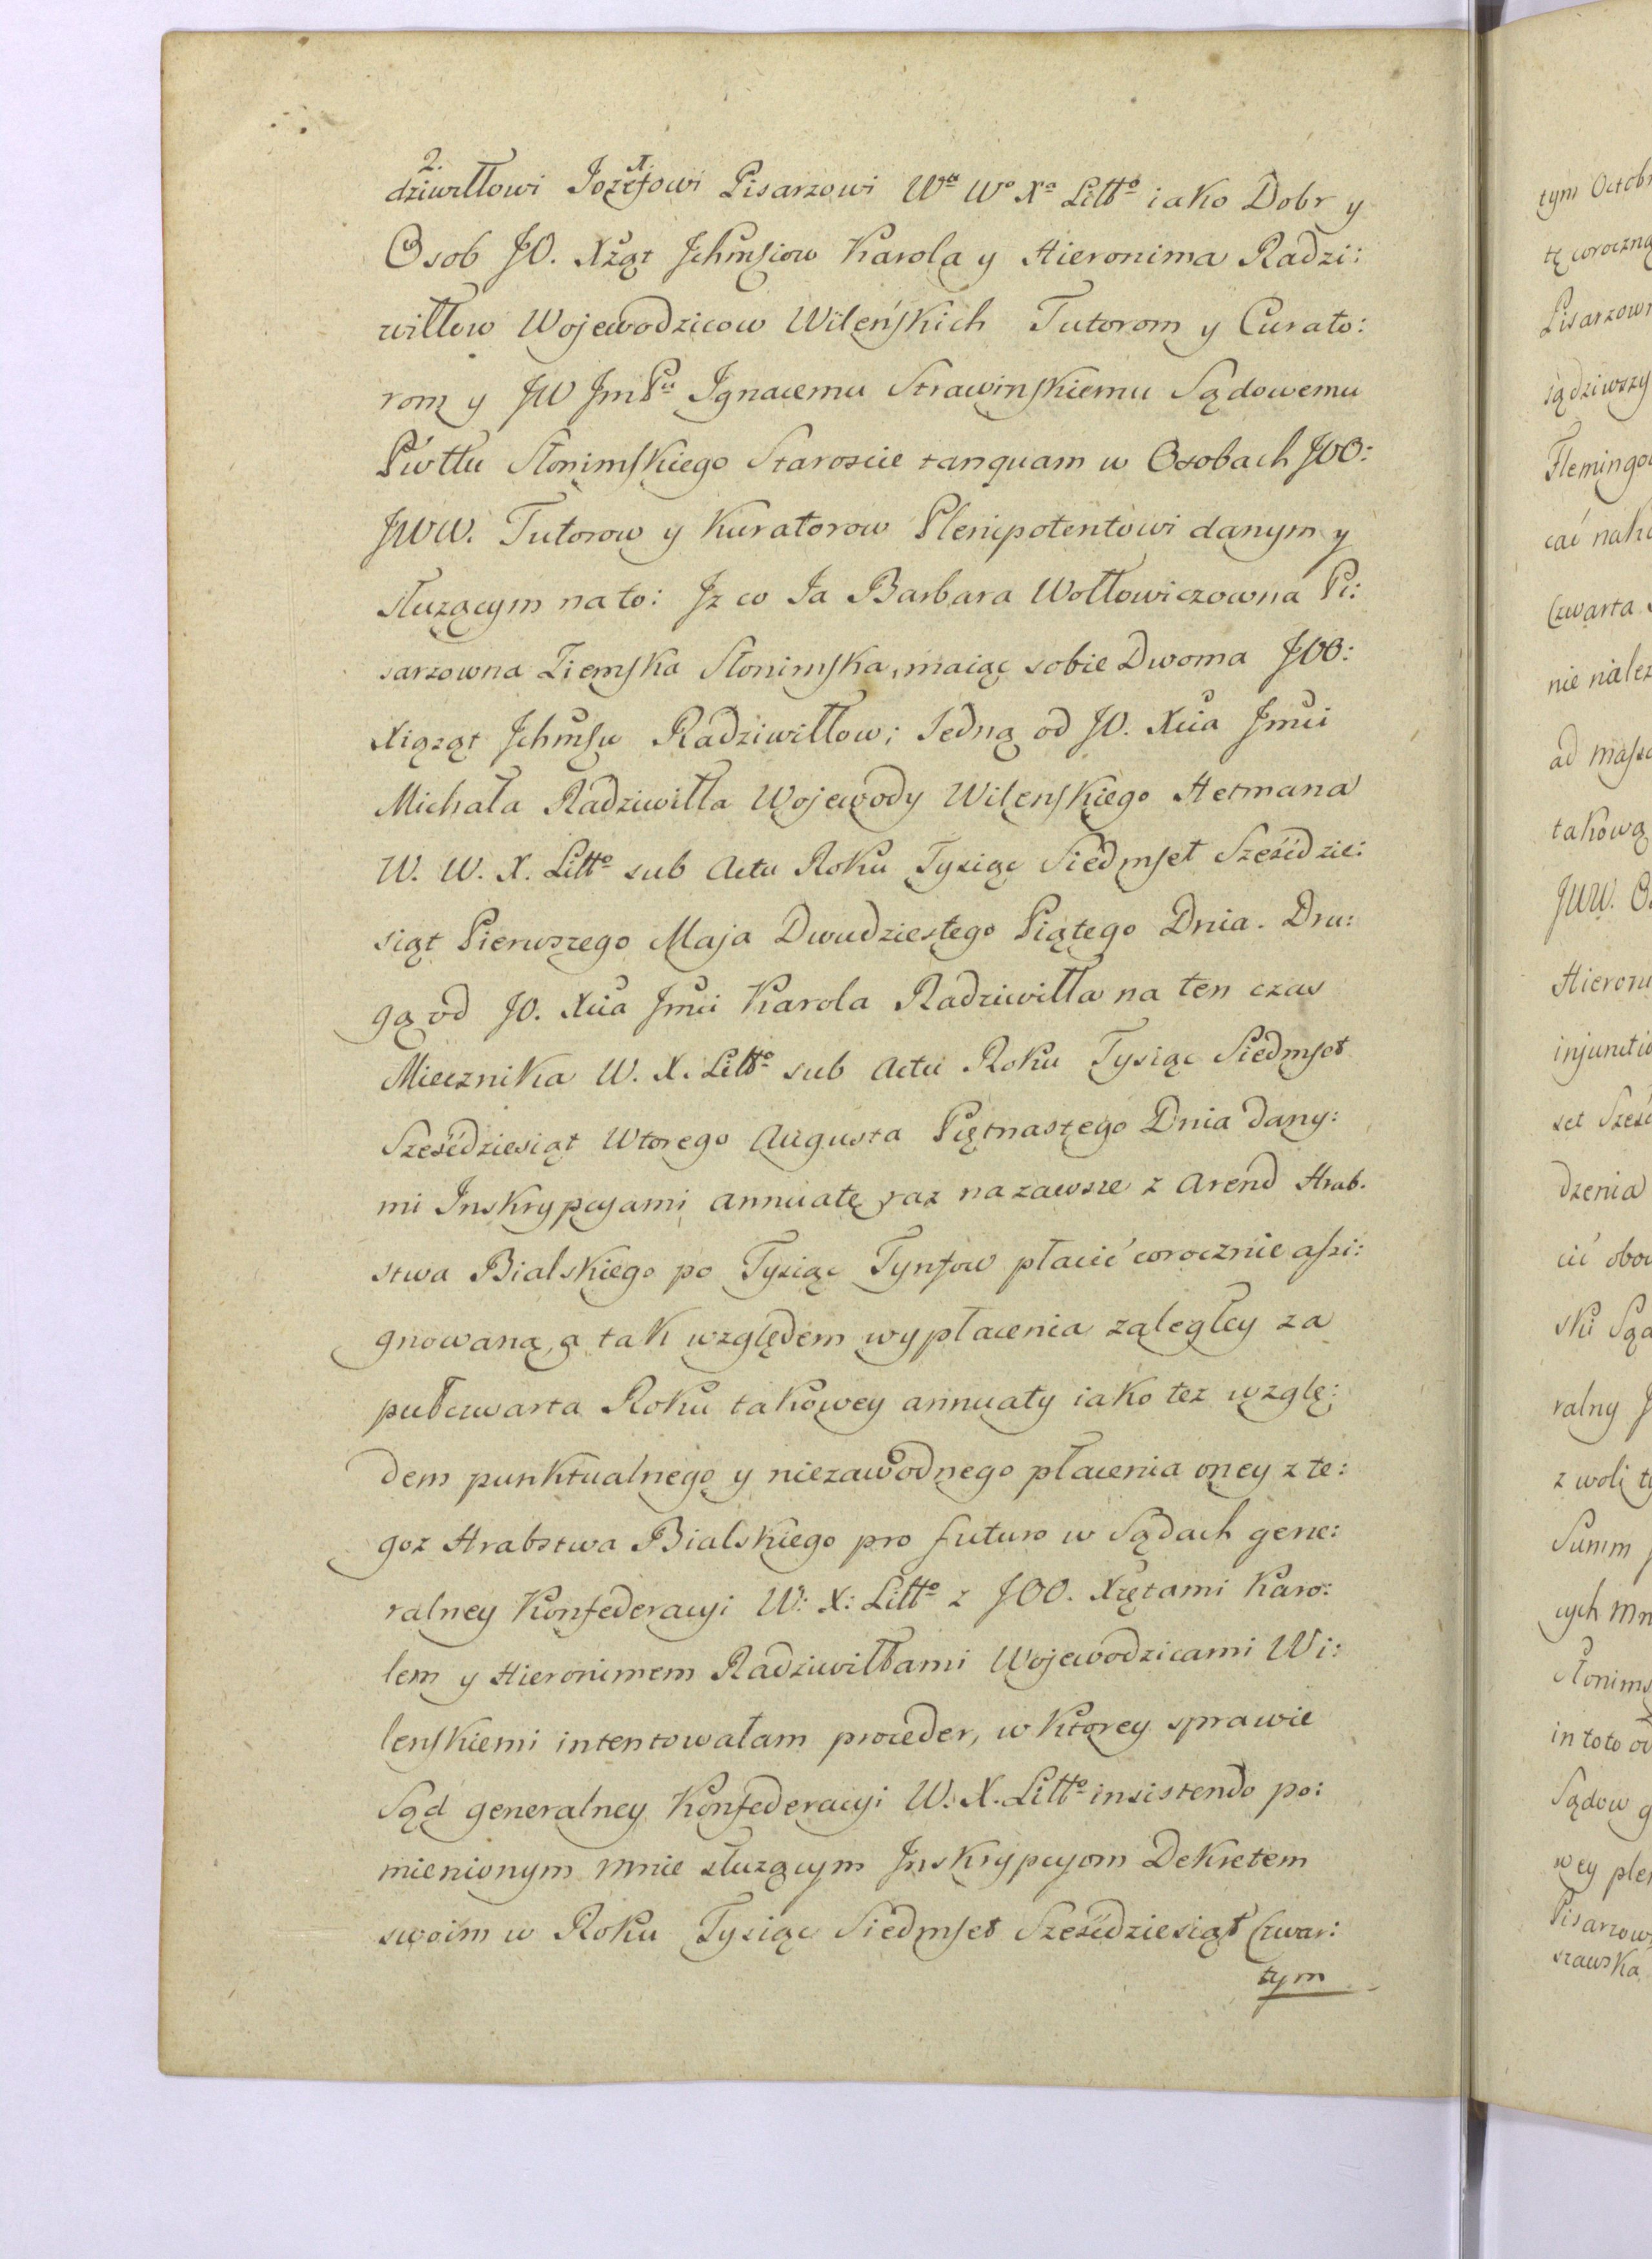 2.
dziwiłłowi Jozefowi X. Pisarzowi Wu Wo Xa Litto iako Dobr y
Osob JO. Xżąt Jchmsciow Karola y Hieronima Radzi:
wiłłow Wojewodzicow Wileńskich Tutorom y Curato:
rom y JW JmPu Jgnacemu Strawinskiemu Sądowemu
Pwttu Słonimskiego Staroscie tanquam w Osobach JOO:
JWW. Tutorow y Kuratorow Plenipotentowi danym y
służącym na to: Jż co Ja Barbara Wołłowiczowna Pi:
sarzowna Ziemska Słonimska, maiąc sobie Dwoma JOO:
Xiążąt Jchmsw Radziwiłłow; Jedną od JO. Xcia Jmci
Michała Radziwiłła Wojewody Wilenskiego Hetmana
W. W. X. Litto sub Actu Roku Tysiąc Siedmset Sześćdzie:
siąt Pierwszego Maja Dwudziestego Piątego Dnia. Dru:
gą od JO. Xcia Jmci Karola Radziwiłła na ten czas
Miecznika W. X. Litto sub Actu Roku Tysiąc Siedmset
Sześćdziesiąt Wtorego Augusta Piętnastego Dnia dany:
mi Jnskrypcyami annuatę raz nazawsze z Arend Hrab.
stwa Bialskiego po Tysiąc Tynfow płacić corocznie assi:
gnowaną, a tak względem wypłacenia zaległey za
pułczwarta Roku takowey annuaty iako tez wzglę:
dem punktualnego y niezawodnego płacenia oney z te:
goz Hrabstwa Bialskiego pro futuro w Sądach gene:
ralney Konfederacyi W: X: Litto z JOO. Xzętami Karo:
lem y Hieronimem Radziwiłłami Wojewodzicami Wi:
lenskiemi intentowałam proceder, w ktorey sprawie
Sąd generalney Konfederacyi W. X. Litto insistendo po:
mienionym mnie służącym Jnskrypcyom Dekretem
swoim w Roku Tysiąc Siedmset Sześćdziesiąt Czwar:
tym
tym Octobr
tę coroczną
Pisarzowi
sądziwszy
Flemingo
cać nak
Czwarta
nie należ
ad mass
takową
JWW. O
Hieroni
injuncti
set Sześć
dzenia
cić obo
ski Sąd
ralny J
z woli ty
Summ
cych mn
Słonims
in toto
Sądow g
wey plen
Pisarzow
szawska